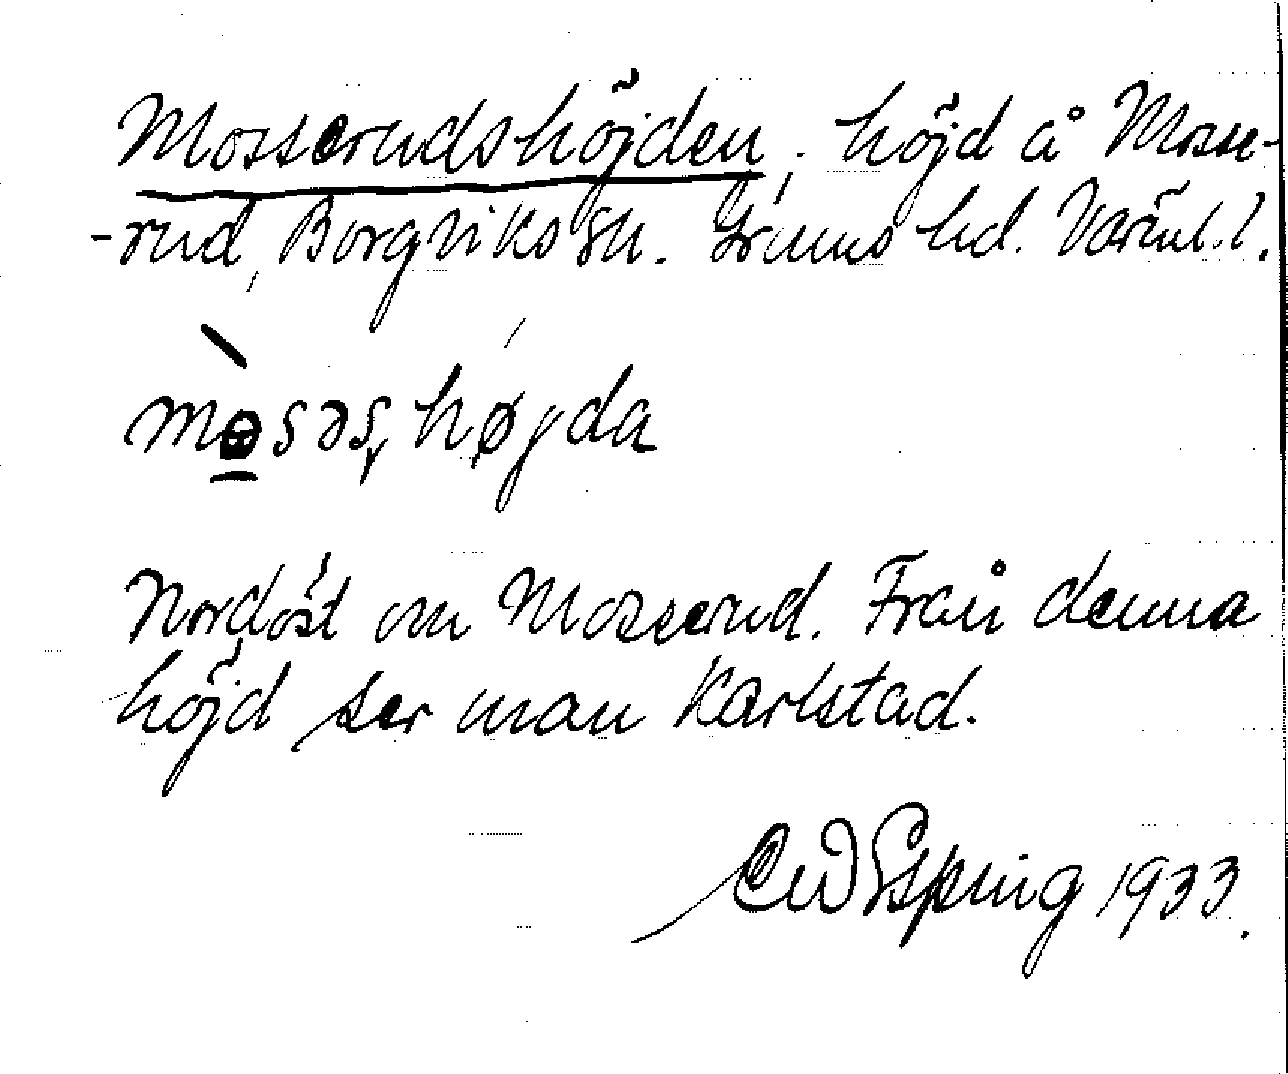 Mosserudshöjden, höjd å Mosse-
-rud, Borgviks sn. Grums hd. Värml. l.
mòsəs,højda
Nordöst om Mosserud. Från denna
höjd ser man Karlstad.
Espring 1933.